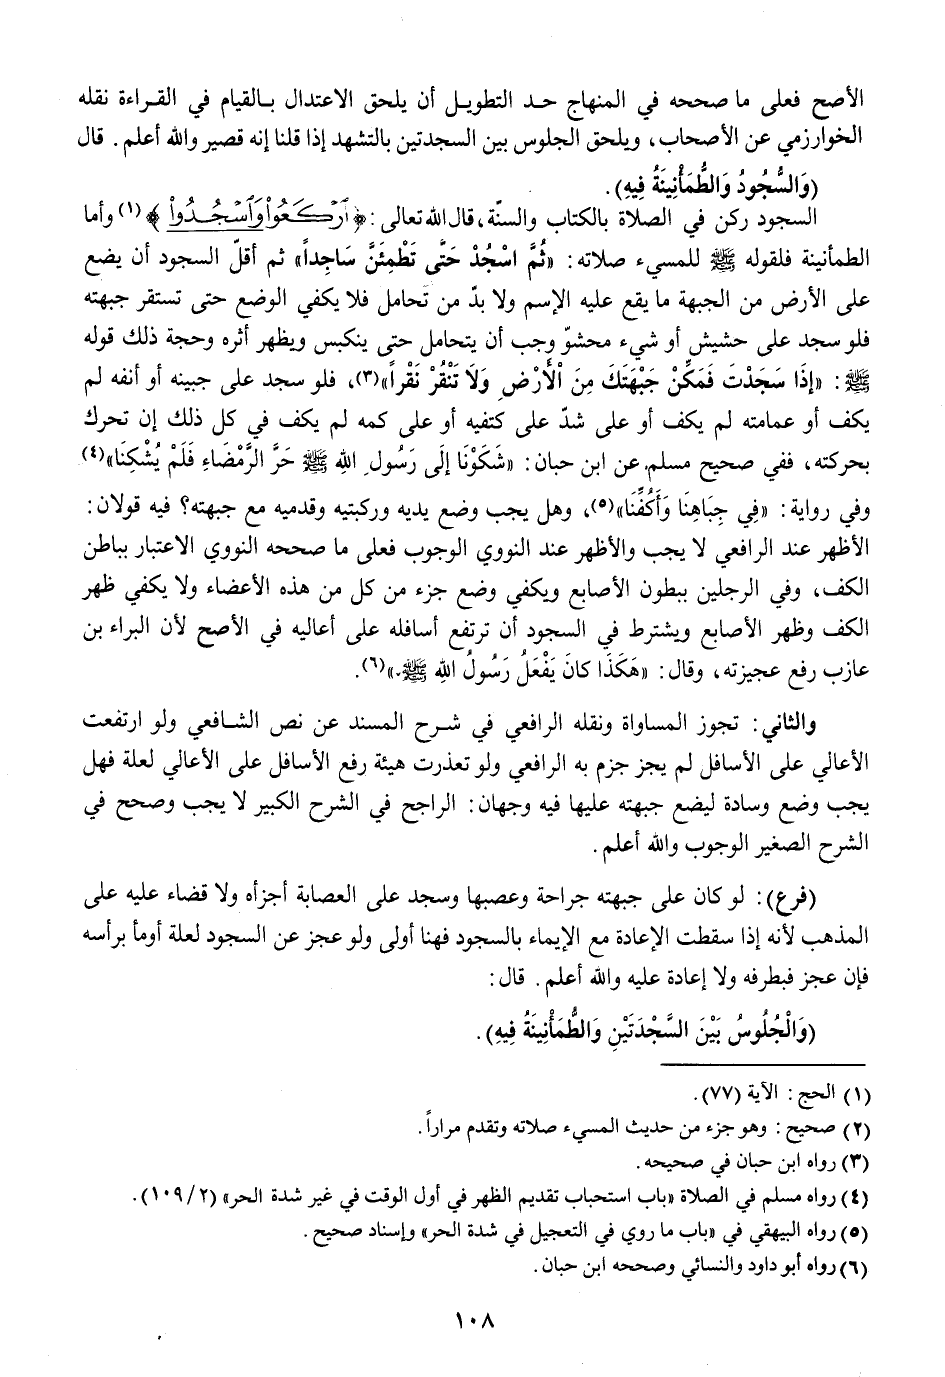 الأصح فعلى ما صححه في المنهاج حد التطويل أن يلحق الاعتدال بالقيام في القراءة نقله
الخوارزمي عن الأصحاب، ويلحق الجلوس بين السجدتين بالتشهد إذا قلنا إنه قصير والله أعلم. قال
(وَالسُّجُودُ وَالطُّمَأْنِينَةُ فِيهِ).
السجود ركن في الصلاة بالكتاب والسنّة، قال الله تعالى: ﴿ٱرْكَعُواْ وَٱسْجُدُواْ﴾(١) وأما
الطمأنينة فلقوله ﷺ للمسيء صلاته: «ثُمَّ اسْجُدْ حَتَّى تَطْمَئِنَّ سَاجِداً» ثم أقلّ السجود أن يضع
على الأرض من الجبهة ما يقع عليه الإسم ولا بدّ من تحامل فلا يكفي الوضع حتى تستقر جبهته
فلو سجد على حشيش أو شيء محشوّ وجب أن يتحامل حتى ينكبس ويظهر أثره وحجة ذلك قوله
ﷺ: «إِذَا سَجَدْتَ فَمَكِّنْ جَبْهَتَكَ مِنَ الْأَرْضِ وَلَا تَنْقُرْ نَقْراً»(٣)، فلو سجد على جبينه أو أنفه لم
يكف أو عمامته لم يكف أو على شدّ على كتفيه أو على كمه لم يكف في كل ذلك إن تحرك
بحركته، ففي صحيح مسلم عن ابن حبان: «شَكَوْنَا إلَى رَسُولِ اللهِ ﷺ حَرَّ الرَّمْضَاءِ فَلَمْ يُشْكِنَا»(٤)
وفي رواية: «فِي جِبَاهِنَا وَأَكُفِّنَا»(٥)، وهل يجب وضع يديه وركبتيه وقدميه مع جبهته؟ فيه قولان:
الأظهر عند الرافعي لا يجب والأظهر عند النووي الوجوب فعلى ما صححه النووي الاعتبار بباطن
الكف، وفي الرجلين ببطون الأصابع ويكفي وضع جزء من كل من هذه الأعضاء ولا يكفي ظهر
الكف وظهر الأصابع ويشترط في السجود أن ترتفع أسافله على أعاليه في الأصح لأن البراء بن
عازب رفع عجيزته، وقال: «هَكَذَا كانَ يَفْعَلُ رَسُولُ اللهِ ﷺ.»(٦).
والثاني: تجوز المساواة ونقله الرافعي في شرح المسند عن نص الشافعي ولو ارتفعت
الأعالي على الأسافل لم يجز جزم به الرافعي ولو تعذرت هيئة رفع الأسافل على الأعالي لعلة فهل
يجب وضع وسادة ليضع جبهته عليها فيه وجهان: الراجح في الشرح الكبير لا يجب وصحح في
الشرح الصغير الوجوب والله أعلم.
(فرع): لو كان على جبهته جراحة وعصبها وسجد على العصابة أجزأه ولا قضاء عليه على
المذهب لأنه إذا سقطت الإعادة مع الإيماء بالسجود فهنا أولى ولو عجز عن السجود لعلة أومأ برأسه
فإن عجز فبطرفه ولا إعادة عليه والله أعلم. قال:
(وَالْجُلُوسُ بَيْنَ السَّجْدَتَيْنِ وَالطُّمَأْنِينَةُ فِيهِ).
(١) الحج: الآية (٧٧).
(٢) صحيح: وهو جزء من حديث المسيء صلاته وتقدم مراراً.
(٣) رواه ابن حبان في صحيحه.
(٤) رواه مسلم في الصلاة «باب استحباب تقديم الظهر في أول الوقت في غير شدة الحر» (١٠٩/٢).
(٥) رواه البيهقي في «باب ما روي في التعجيل في شدة الحر» وإسناد صحيح.
(٦) رواه أبو داود والنسائي وصححه ابن حبان.
١٠٨